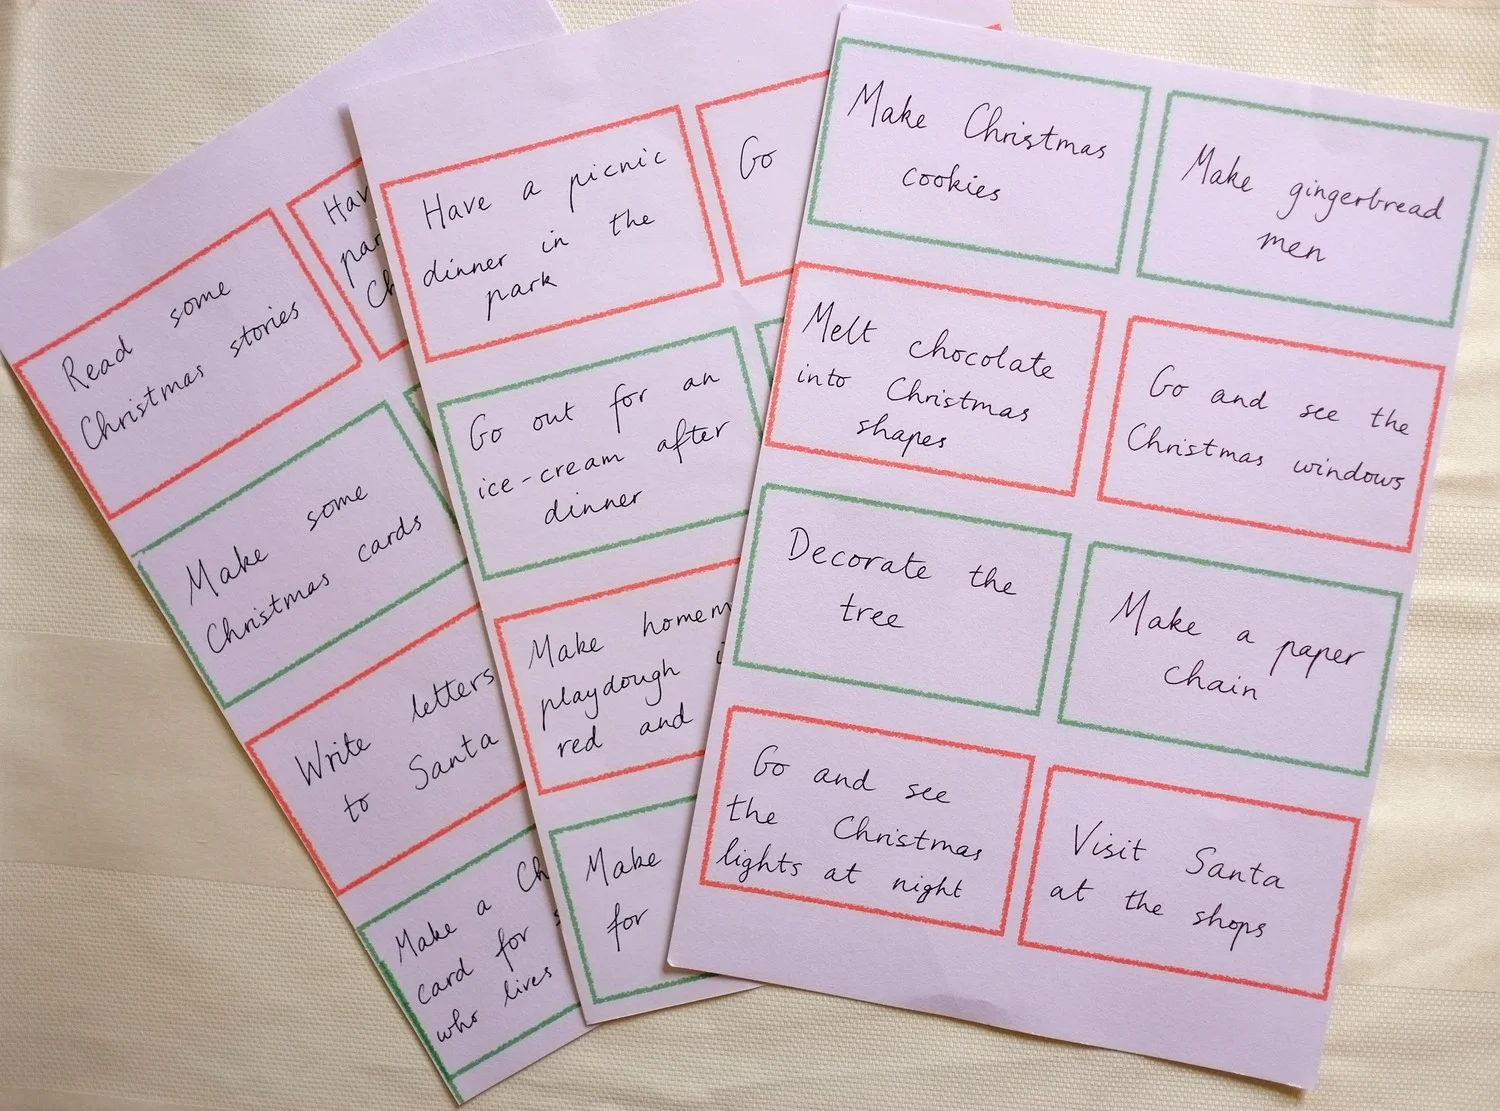 Read some
Christmas stories
Make some
Christmas cards
Write letters
to Santa
Make a
card for
who lives
Have a picnic
dinner in the
park
Go
Go out for an
ice-cream after
dinner
Make
playdough
red and
Make
for
Make Christmas
cookies
Make gingerbread
men
Melt chocolate
into Christmas
shapes
Go and see the
Christmas windows
Decorate the
tree
Make a paper
chain
Go and see
the Christmas
lights at night
Visit Santa
at the shops